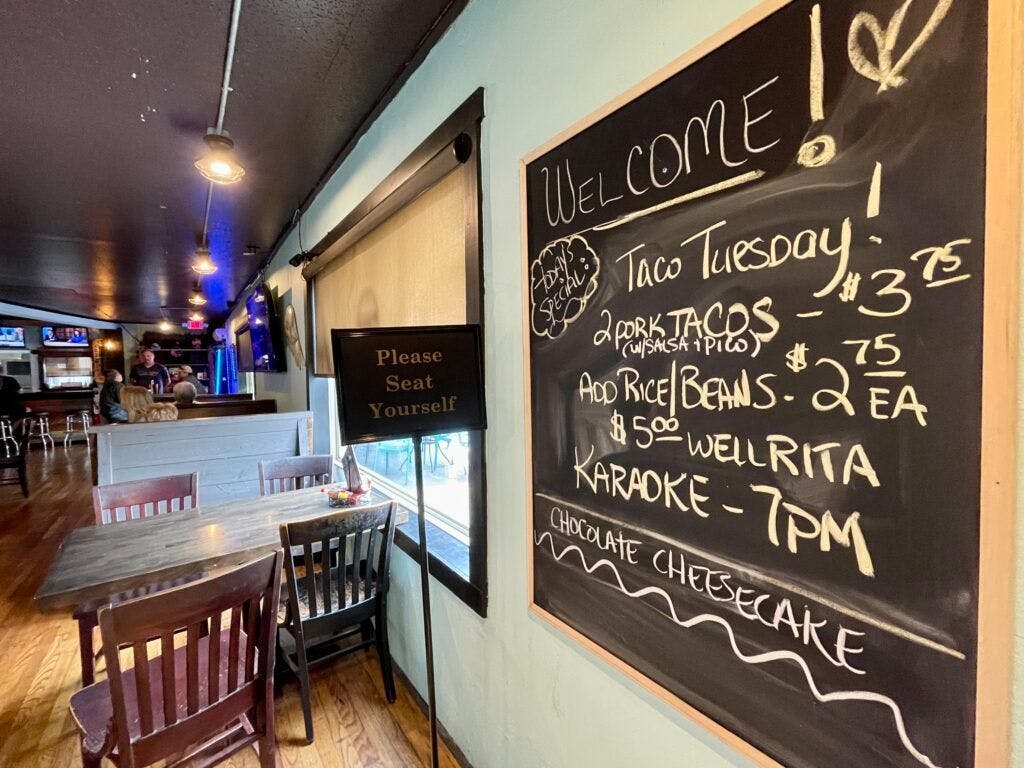 WELCOME!
TODAY'S
SPECIAL:
Taco Tuesday!
2 PORK TACOS - $3.75
(W/SALSA + PICO)
ADD RICE/BEANS - $2.75 EA
$5.00 WELL RITA
KARAOKE - 7PM
CHOCOLATE CHEESECAKE
Please
Seat
Yourself